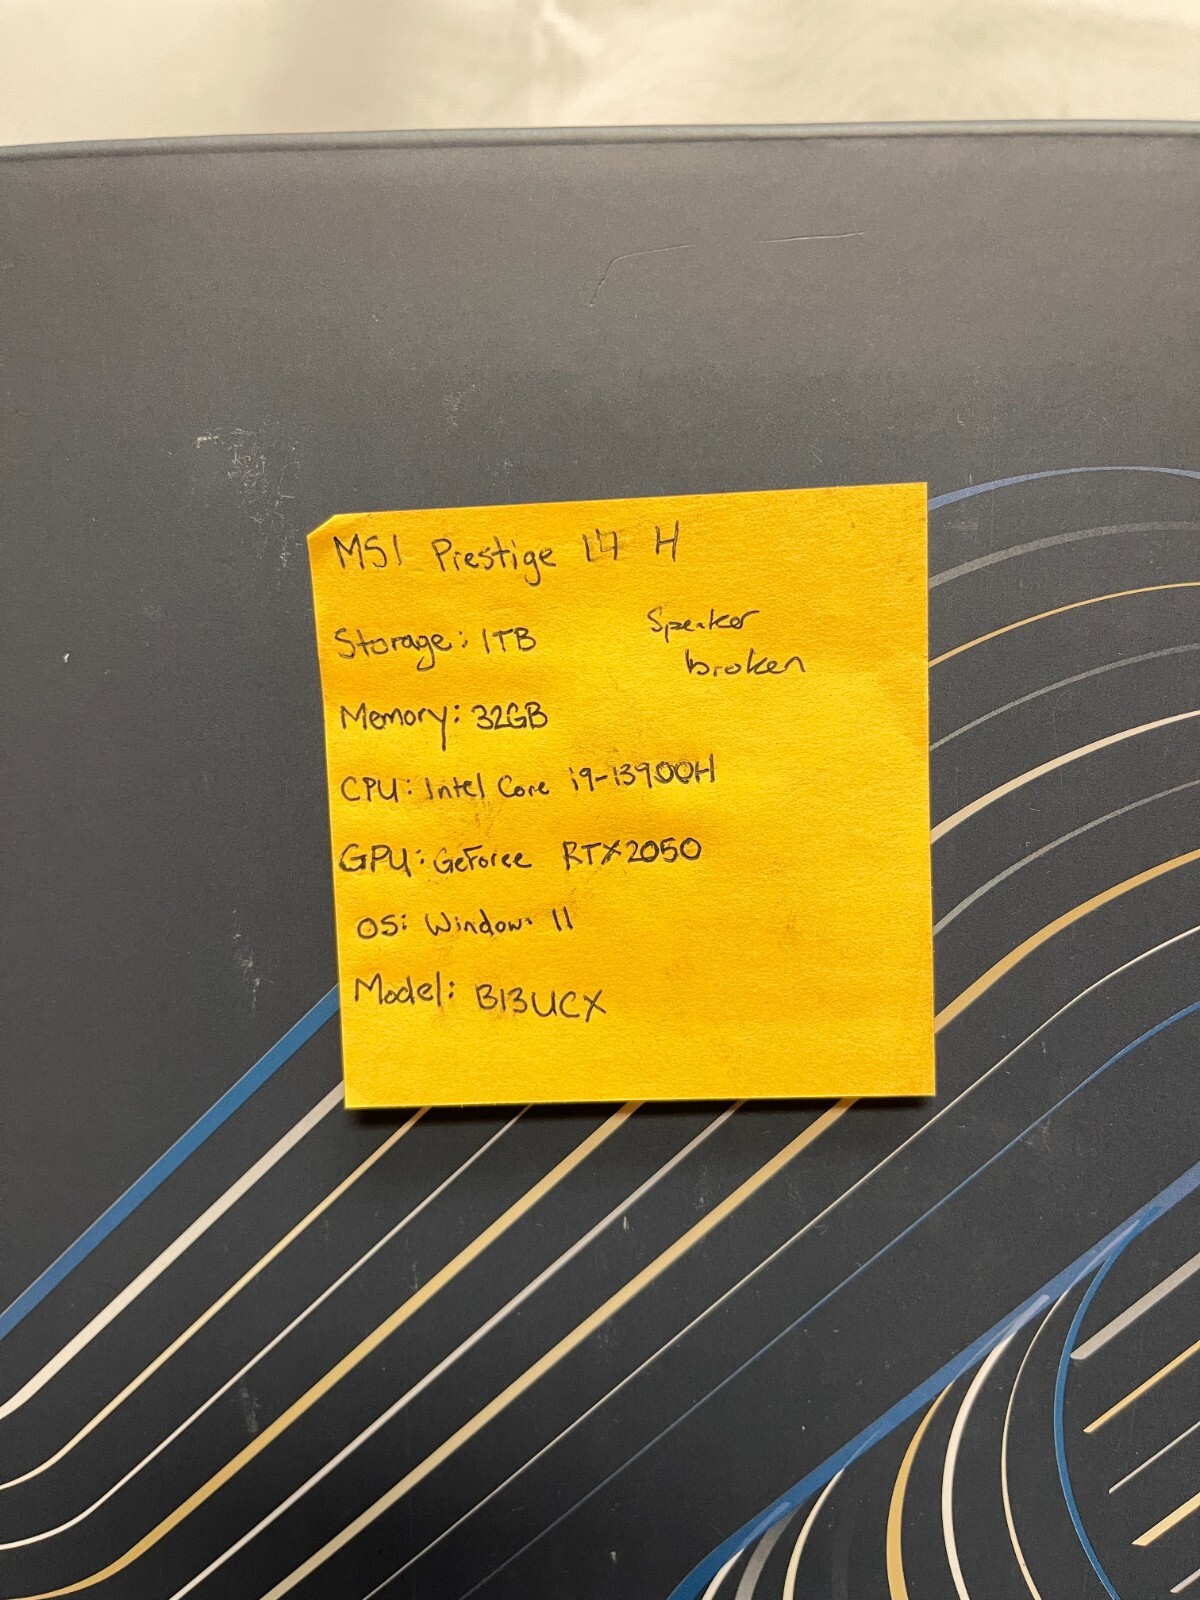 MSI Prestige 14 H
Storage: 1TB
Speaker
broken
Memory: 32GB
CPU: Intel Core i9-13900H
GPU: GeForce RTX2050
OS: Windows 11
Model: B13UCX